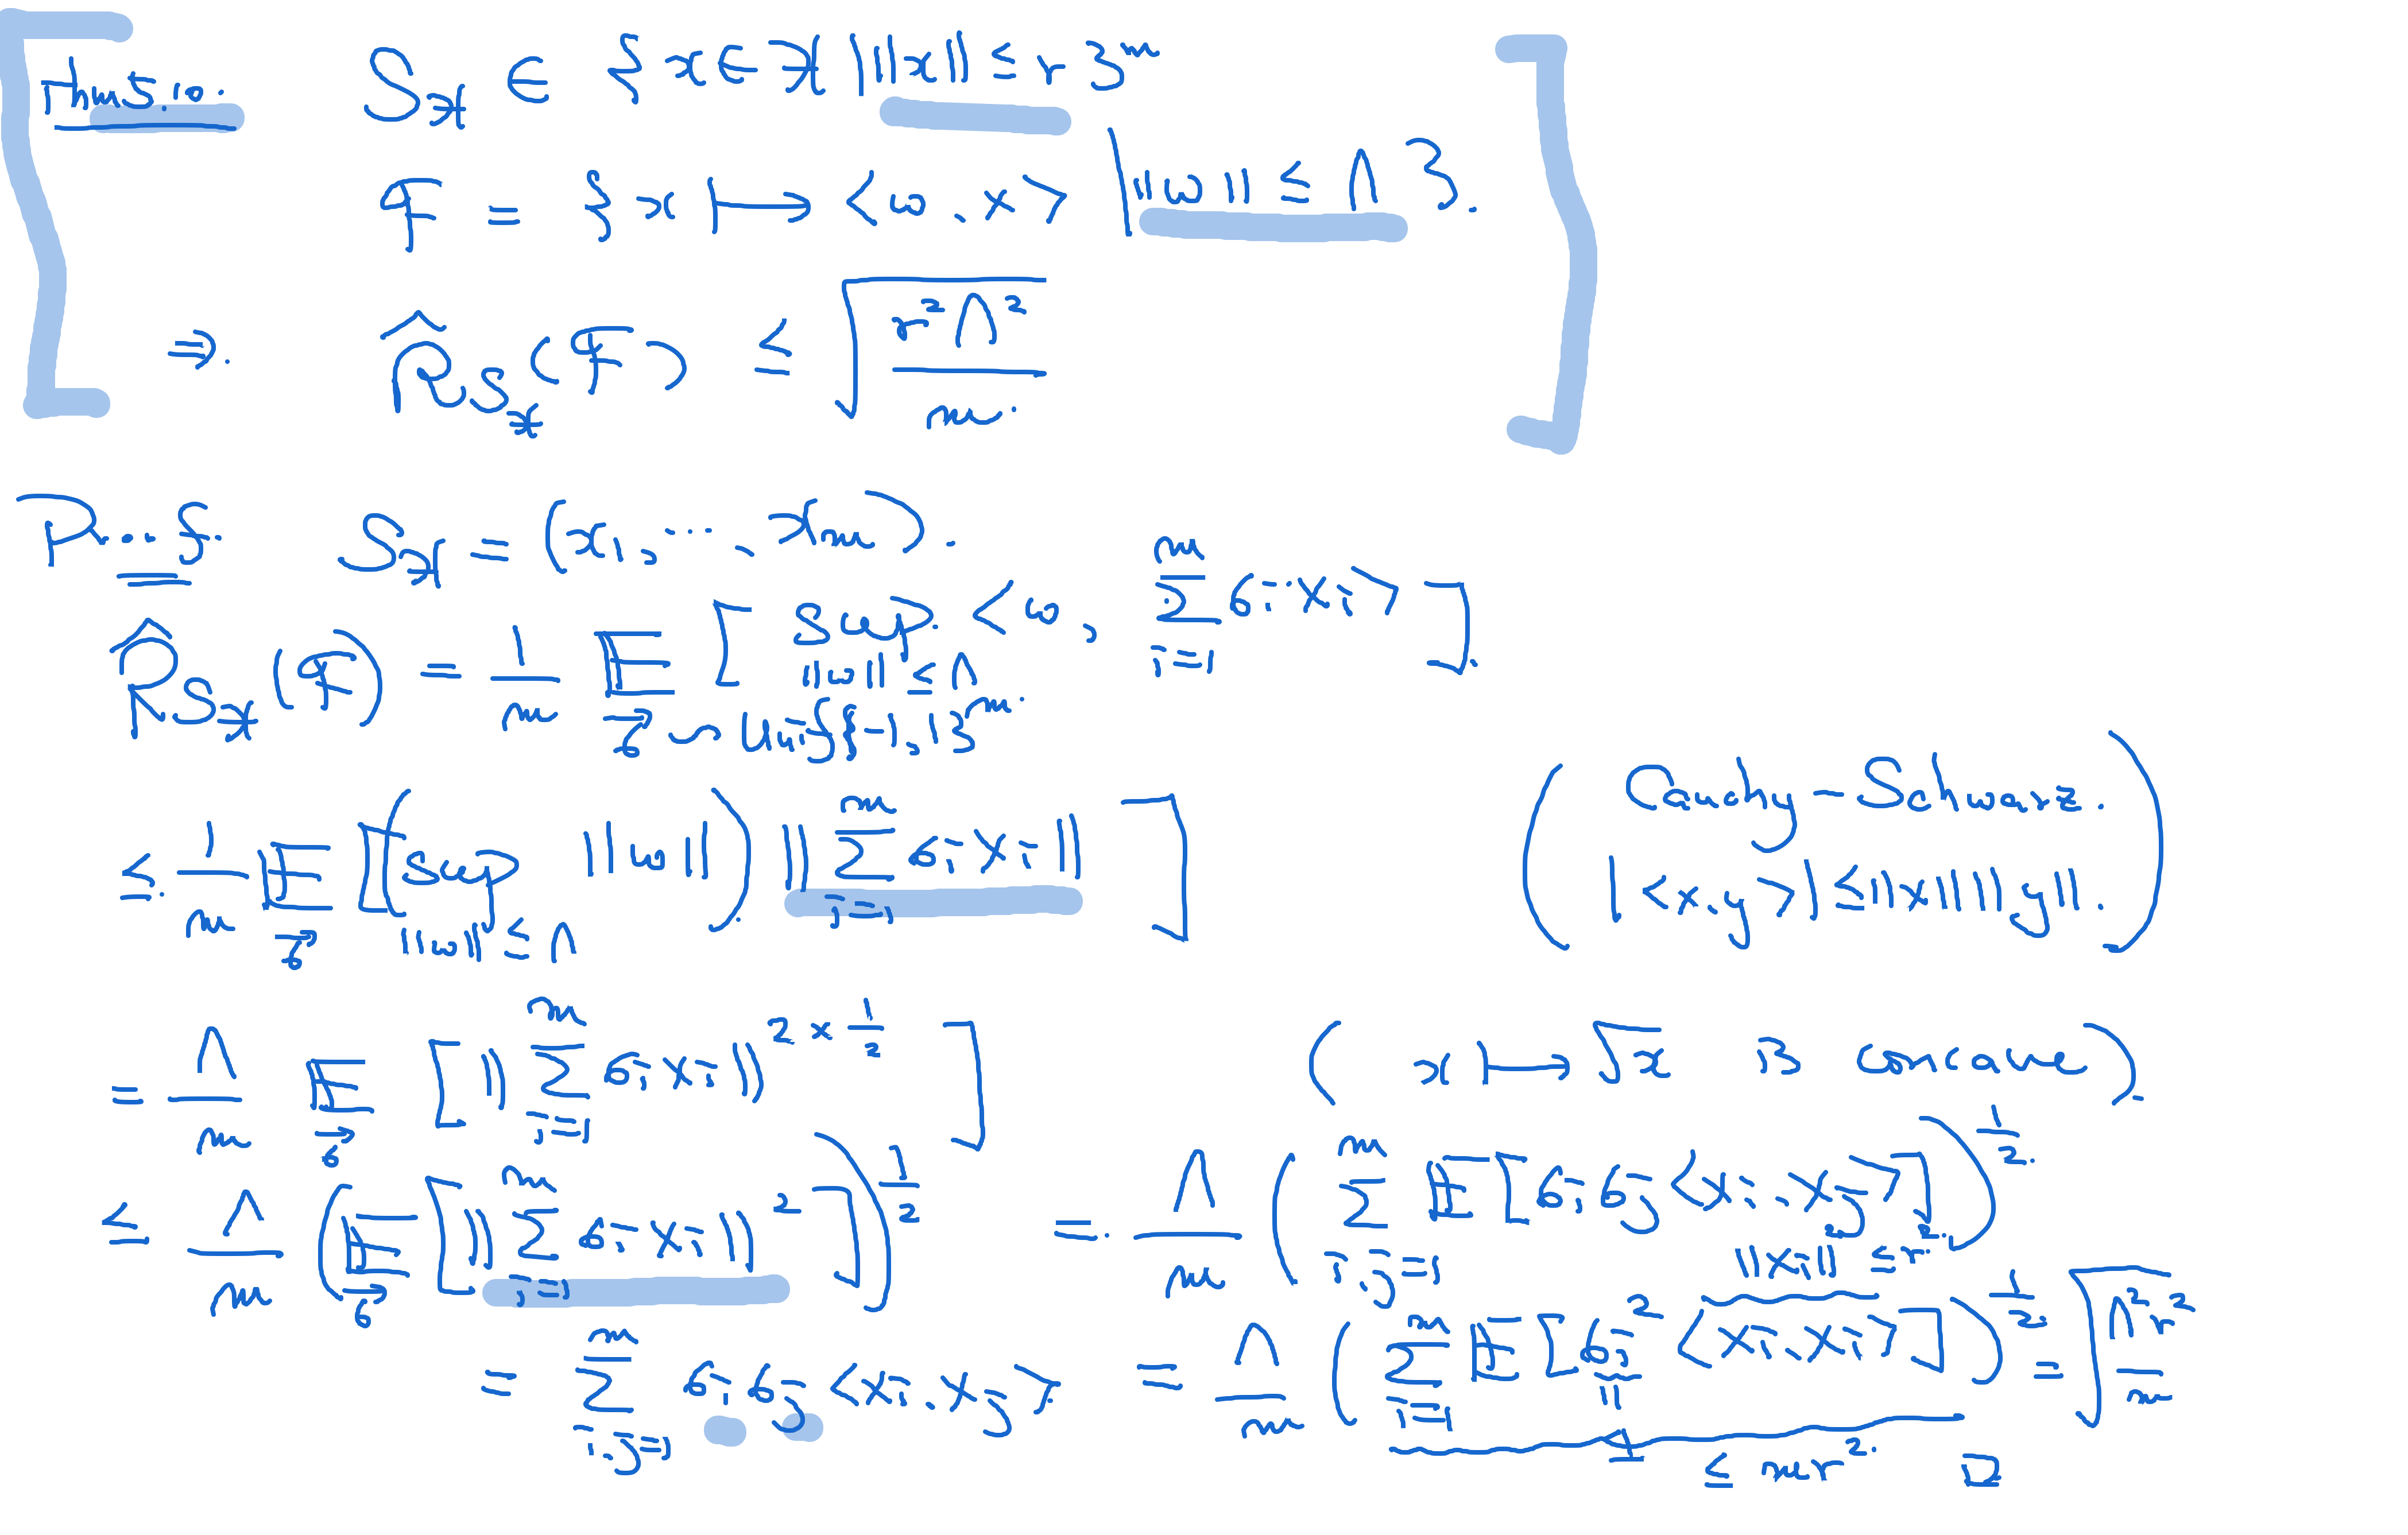 Thm 5.10.
S_X ∈ { x ∈ X | ‖x‖ ≤ r }^m
F = { x ↦ <w, x> | ‖w‖ ≤ Λ }.
⇒. R̂_{S_X}(F) ≤ √(r²Λ² / m).
Proof. S_X = (x_1, …, x_m).
R̂_{S_X}(F) = 1/m E_{σ⃗ ~ Unif{-1, 1}^m} [ sup_{‖w‖ ≤ Λ} <w, Σ_{i=1}^m σ_i x_i> ].
≤ 1/m E_{σ⃗} [ ( sup_{‖w‖ ≤ Λ} ‖w‖ ) ‖ Σ_{i=1}^m σ_i x_i ‖ ]
( Cauchy-Schwarz.
|<x, y>| ≤ ‖x‖ ‖y‖. )
= Λ/m E_{σ⃗} [ ‖ Σ_{i=1}^m σ_i x_i ‖^{2 × 1/2} ] ( x ↦ √x is concave )
≤ Λ/m ( E_{σ⃗} [ ‖ Σ_{i=1}^m σ_i x_i ‖² ] )^{1/2} = Λ/m ( Σ_{i,j=1}^m E [ σ_i σ_j <x_i, x_j> ] )^{1/2}
‖x_i‖² ≤ r².
= Σ_{i,j=1}^m σ_i σ_j <x_i, x_j>. = Λ/m ( Σ_{i=1}^m E [ σ_i² <x_i, x_i> ] )^{1/2} = √(Λ² r² / m)
1
≤ m r². □